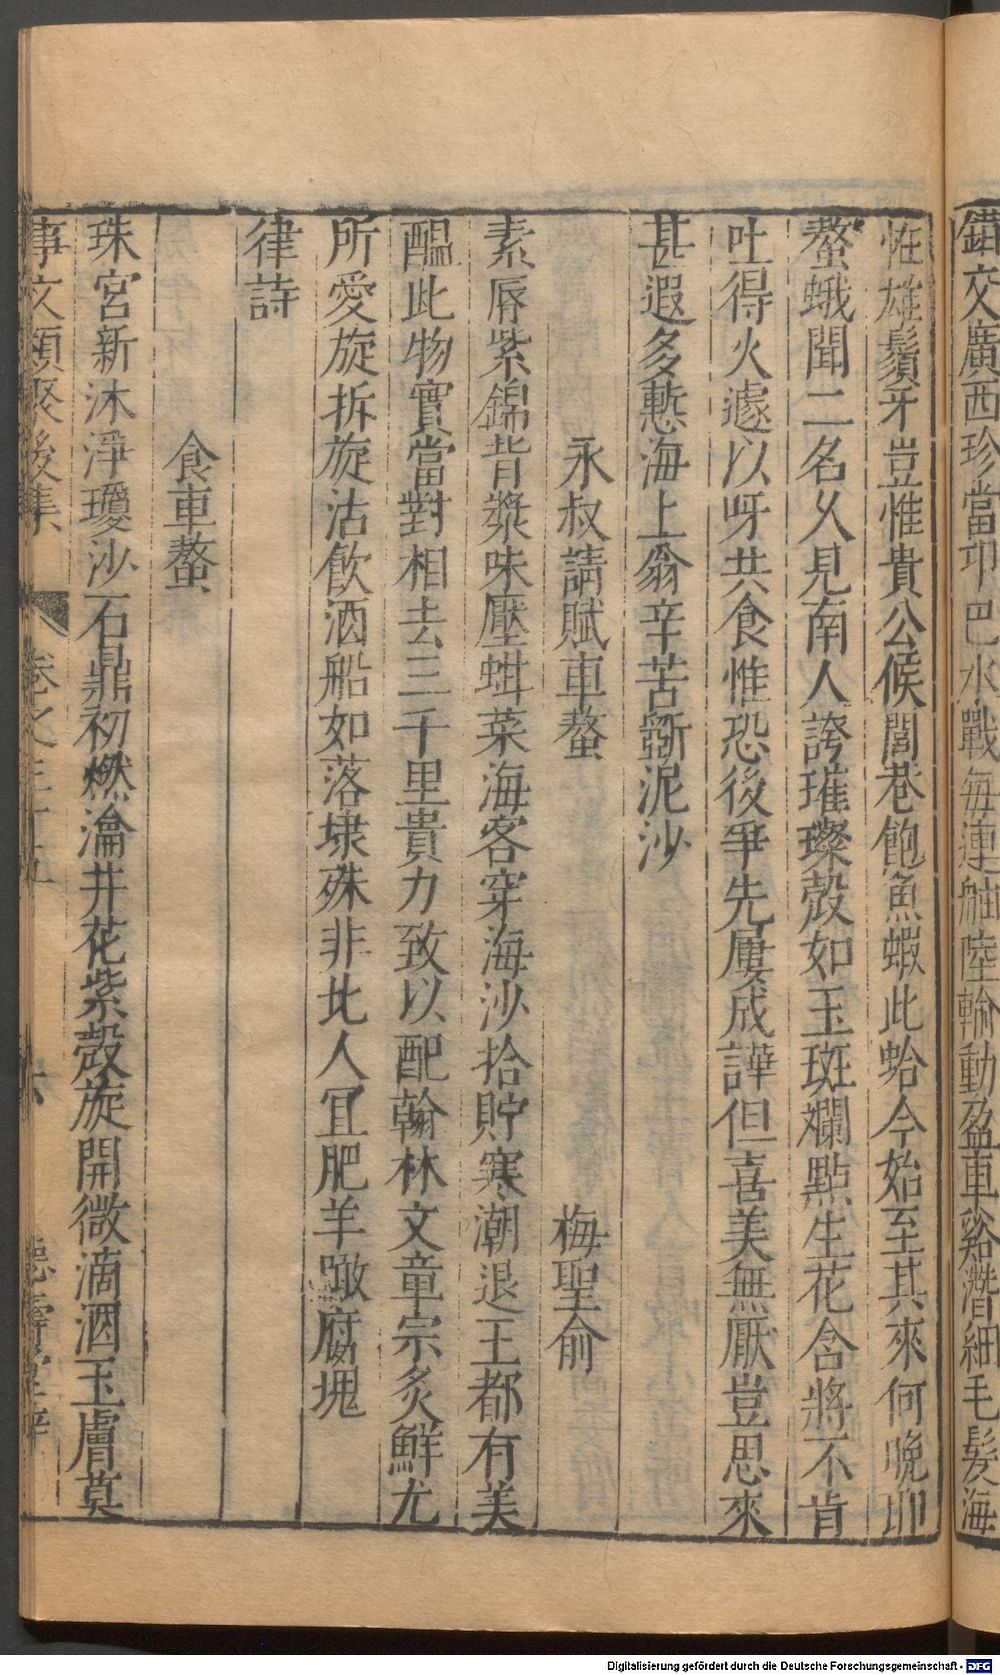 錯交廣西珍當卭巴水戰每連舳陸輸動盈車谿潛細毛髮海
恠雄鬚牙豈惟貴公候閭巷飽魚蝦此蛤今始至其來何晩耶
螯蛾聞二名乆見南人誇璀璨殻如玉斑斕點生花含將不肯
吐得火遽以呀共食惟恐後爭先屢成譁但喜美無厭豈思來
甚遐多慙海上翁辛苦斵泥沙
永叔請賦車螯 梅聖俞
素脣紫錦背漿味壓蚶菜海客穿海沙拾貯寒潮退王都有美
醖此物實當對相去三千里貴力致以配翰林文章宗炙鮮尤
所愛旋拆旋沽飲酒船如落埭殊非北人冝肥羊噉腐塊
律詩
食車螯
珠宮新沐淨瓊沙石鼎初燃瀹井花紫殻旋開微滴酒玉膚莫
事文類聚後集 卷之三十五 六 德壽堂梓
Digitalisierung gefördert durch die Deutsche Forschungsgemeinschaft - DFG